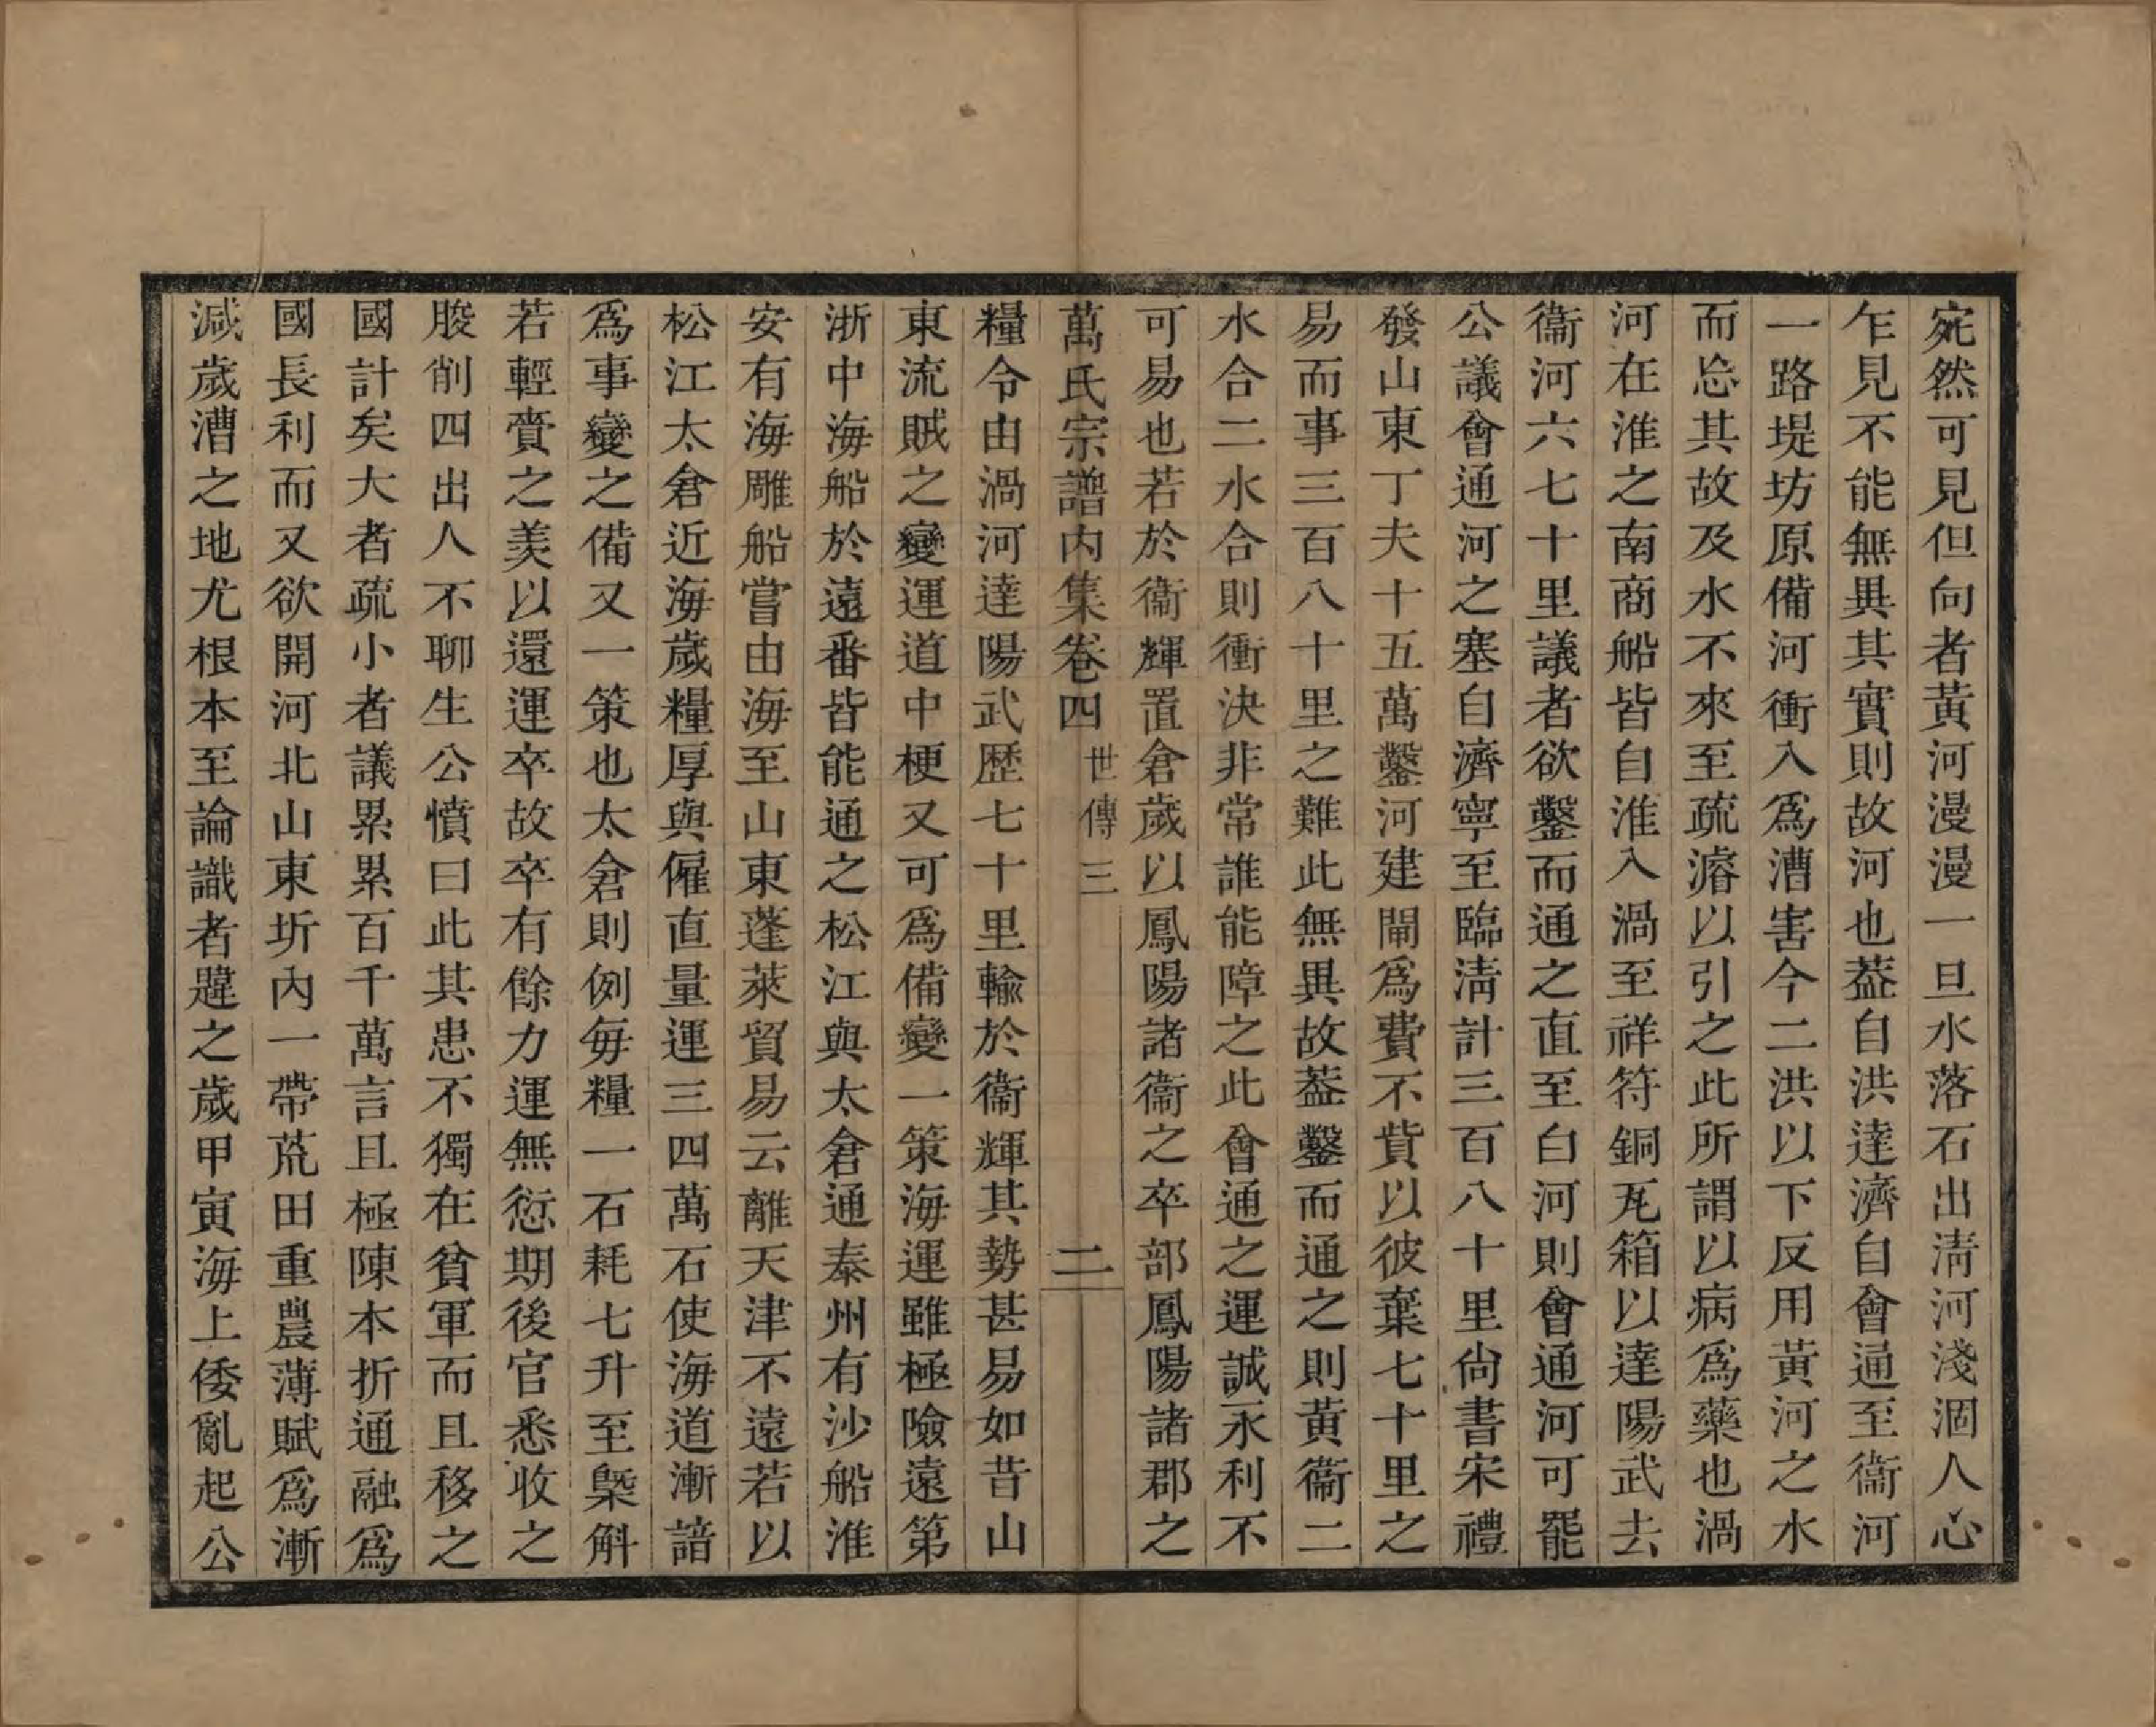 宛然可見但向者黃河漫漫一旦水落石出淸河淺涸人心
乍見不能無異其實則故河也葢自洪達濟自會通至衞河
一路堤坊原備河衝入爲漕害今二洪以下反用黃河之水
而忘其故及水不來至疏濬以引之此所謂以病爲藥也渦
河在淮之南商船皆自淮入渦至祥符銅瓦箱以達陽武去
衞河六七十里議者欲鑿而通之直至白河則會通河可罷
公議會通河之塞自濟寧至臨淸計三百八十里尙書宋禮
發山東丁夫十五萬鑿河建閘爲費不貲以彼棄七十里之
易而事三百八十里之難此無異故葢鑿而通之則黃衞二
水合二水合則衝決非常誰能障之此會通之運誠永利不
可易也若於衞輝置倉歲以鳳陽諸衞之卒部鳳陽諸郡之
萬氏宗譜內集卷四 世傳三 二
糧令由渦河達陽武歷七十里輸於衞輝其勢甚易如昔山
東流賊之變運道中梗又可爲備變一策海運雖極險遠第
浙中海船於遠番皆能通之松江與太倉通泰州有沙船淮
安有海雕船嘗由海至山東蓬萊貿易云離天津不遠若以
松江太倉近海歲糧厚與僱直量運三四萬石使海道漸諳
爲事變之備又一策也太倉則例每糧一石耗七升至槩斛
若輕賫之羨以還運卒故卒有餘力運無愆期後官悉收之
朘削四出人不聊生公憤曰此其患不獨在貧軍而且移之
國計矣大者疏小者議累累百千萬言且極陳本折通融爲
國長利而又欲開河北山東圻內一帶荒田重農薄賦爲漸
減歲漕之地尤根本至論識者韙之歲甲寅海上倭亂起公